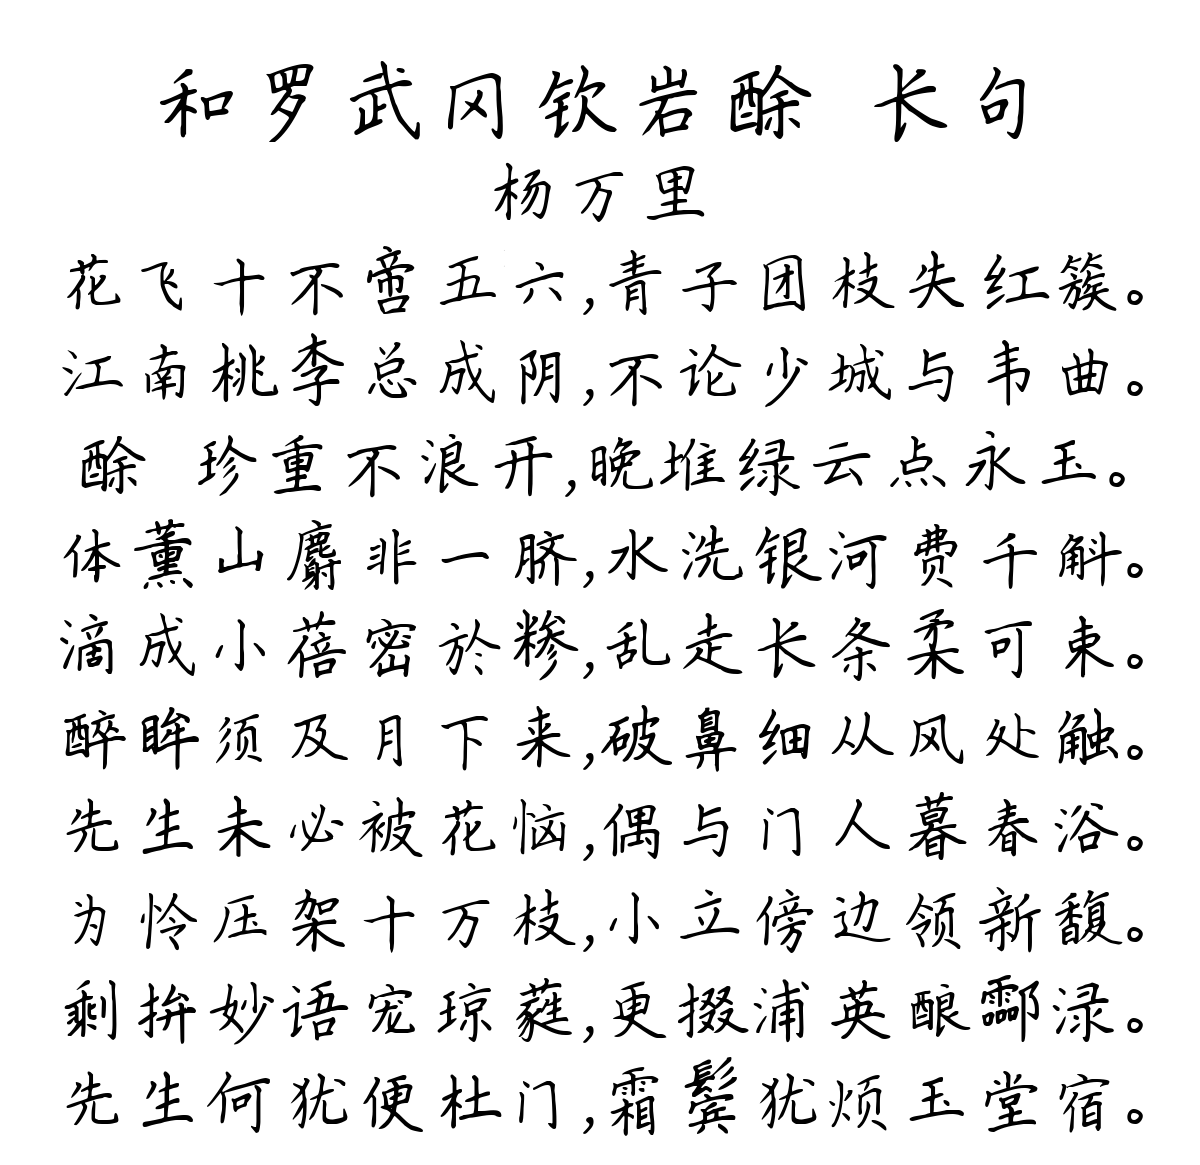 和罗武冈钦岩酴 长句
杨万里
花飞十不啻五六,青子团枝失红簇。
江南桃李总成阴,不论少城与韦曲。
酴 珍重不浪开,晚堆绿云点永玉。
体薰山麝非一脐,水洗银河费千斛。
滴成小蓓密於糁,乱走长条柔可束。
醉眸须及月下来,破鼻细从风处触。
先生未必被花恼,偶与门人暮春浴。
为怜压架十万枝,小立傍边领新馥。
剩拚妙语宠琼蕤,更掇浦英酿酃渌。
先生何犹便杜门,霜鬓犹烦玉堂宿。